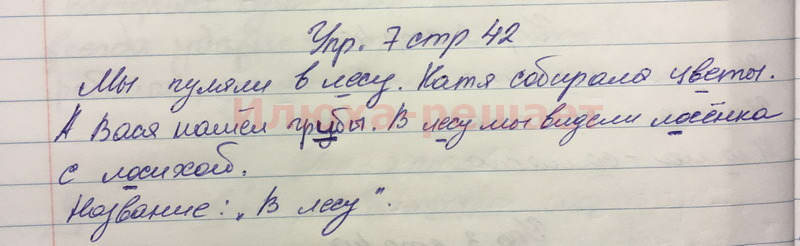 Упр. 7 стр 42
Мы гуляли в лесу. Катя собирала цветы.
Илюха-решает
А Вася нашёл грибы. В лесу мы видели лосёнка
с лосихой.
Название: „В лесу".